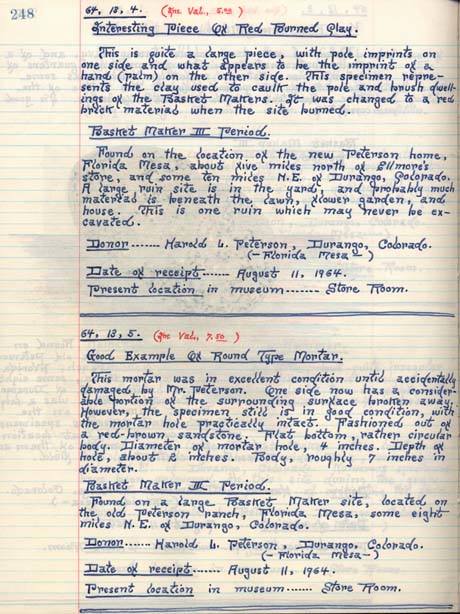 248
64, 13, 4. (Ins. Val., 5.00)
Interesting Piece Of Red Burned Clay.
This is quite a large piece, with pole imprints on
one side and what appears to be the imprint of a
hand (palm) on the other side. This specimen repre-
sents the clay used to caulk the pole and brush dwell-
ings of the Basket Makers. It was changed to a red
brick material when the site burned.
Basket Maker III Period.
Found on the location of the new Peterson home,
Florida Mesa, about five miles north of Ellmore's
store, and some ten miles N.E. of Durango, Colorado.
A large ruin site is in the yard, and probably much
material is beneath the lawn, flower garden, and
house. This is one ruin which may never be ex-
cavated.
Donor....... Harold L. Peterson, Durango, Colorado.
(- Florida Mesa -)
Date of receipt....... August 11, 1964.
Present location in museum....... Store Room.
64, 13, 5. (Ins. Val., 7.50)
Good Example Of Round Type Mortar.
This mortar was in excellent condition until accidentally
damaged by Mr. Peterson. One side now has a consider-
able portion of the surrounding surface broken away.
However, the specimen still is in good condition, with
the mortar hole practically intact. Fashioned out of
a red-brown sandstone. Flat bottom, rather circular
body. Diameter of mortar hole, 4 inches. Depth of
hole, about 2 inches. Body, roughly 7 inches in
diameter.
Basket Maker III Period.
Found on a large Basket Maker site, located on
the old Peterson ranch, Florida Mesa, some eight
miles N.E. of Durango, Colorado.
Donor....... Harold L. Peterson, Durango, Colorado.
(- Florida Mesa -)
Date of receipt....... August 11, 1964.
Present location in museum....... Store Room.